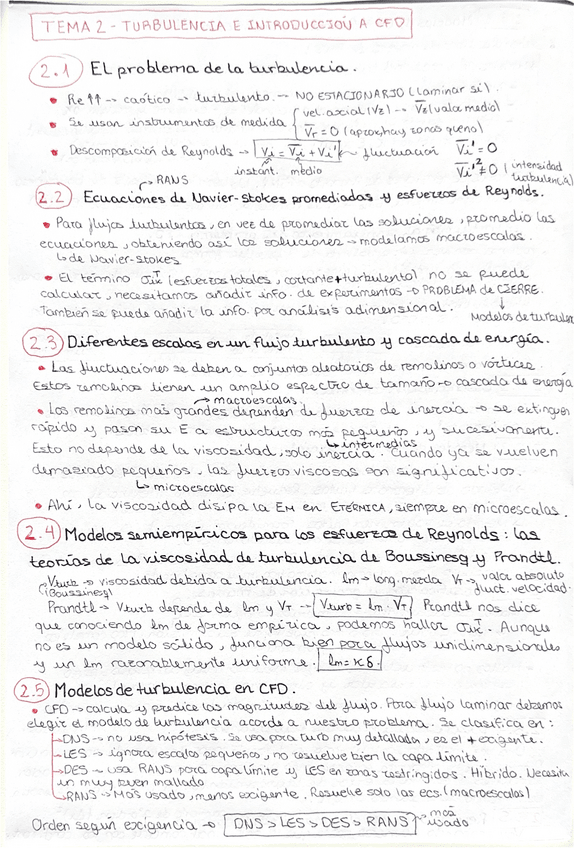 TEMA 2 - TURBULENCIA E INTRODUCCIÓN A CFD
2.1 EL problema de la turbulencia.
• Re↑↑ → caótico → turbulento. → NO ESTACIONARIO (laminar sí).
• Se usan instrumentos de medida { vel. axial (Vz) → V̅z (valor medio)
V̅r = 0 (aprox, hay zonas que no)
• Descomposición de Reynolds → Vi = V̅i + Vi' ← fluctuación V̅i' = 0
instant. medio V̅i'² ≠ 0 (intensidad turbulencia)
→ RANS
2.2 Ecuaciones de Navier-Stokes promediadas y esfuerzos de Reynolds.
• Para flujos turbulentos, en vez de promediar las soluciones, promedio las
ecuaciones, obteniendo así las soluciones → modelamos macroescalas.
↳ de Navier-Stokes
• El término (esfuerzos totales, cortante + turbulento) no se puede
calcular, necesitamos añadir info. de experimentos → PROBLEMA de CIERRE.
También se puede añadir la info. por análisis adimensional. Modelos de turbulen
2.3 Diferentes escalas en un flujo turbulento y cascada de energía.
• Las fluctuaciones se deben a conjuntos aleatorios de remolinos o vórtices.
Estos remolinos tienen un amplio espectro de tamaño → cascada de energía
→ macroescalas
• Los remolinos más grandes dependen de fuerzas de inercia → se extinguen
rápido y pasan su E a estructuras más pequeños, y sucesivamente.
↳ intermedias
Esto no depende de la viscosidad, solo inercia. Cuando ya se vuelven
demasiado pequeños, las fuerzas viscosas son significativos.
↳ microescalas
• Ahí, la viscosidad disipa la EM en ETÉRMICA, siempre en microescalas.
2.4 Modelos semiempíricos para los esfuerzos de Reynolds: las
teorías de la viscosidad de turbulencia de Boussinesq y Prandtl.
νturb → viscosidad debida a turbulencia. lm → long. mezcla VT → valor absoluto
(Boussinesq) fluct. velocidad.
Prandtl → νturb depende de lm y VT → νturb = lm · VT Prandtl nos dice
que conociendo lm de forma empírica, podemos hallar Aunque
no es un modelo sólido, funciona bien para flujos unidimensionales
y un lm razonablemente uniforme. lm = κδ.
2.5 Modelos de turbulencia en CFD.
• CFD → calcula y predice las magnitudes del flujo. Para flujo laminar debemos
elegir el modelo de turbulencia acorde a nuestro problema. Se clasifica en:
→DNS → no usa hipótesis. Se usa para turb muy detallada, es el + exigente.
→LES → ignora escalas pequeñas, no resuelve bien la capa límite.
→DES → usa RANS para capa límite y LES en zonas restringidas. Híbrido. Necesita
un muy buen mallado
→RANS → Más usado, menos exigente. Resuelve solo las ecs. (macroescalas)
Orden según exigencia → DNS > LES > DES > RANS → más usado